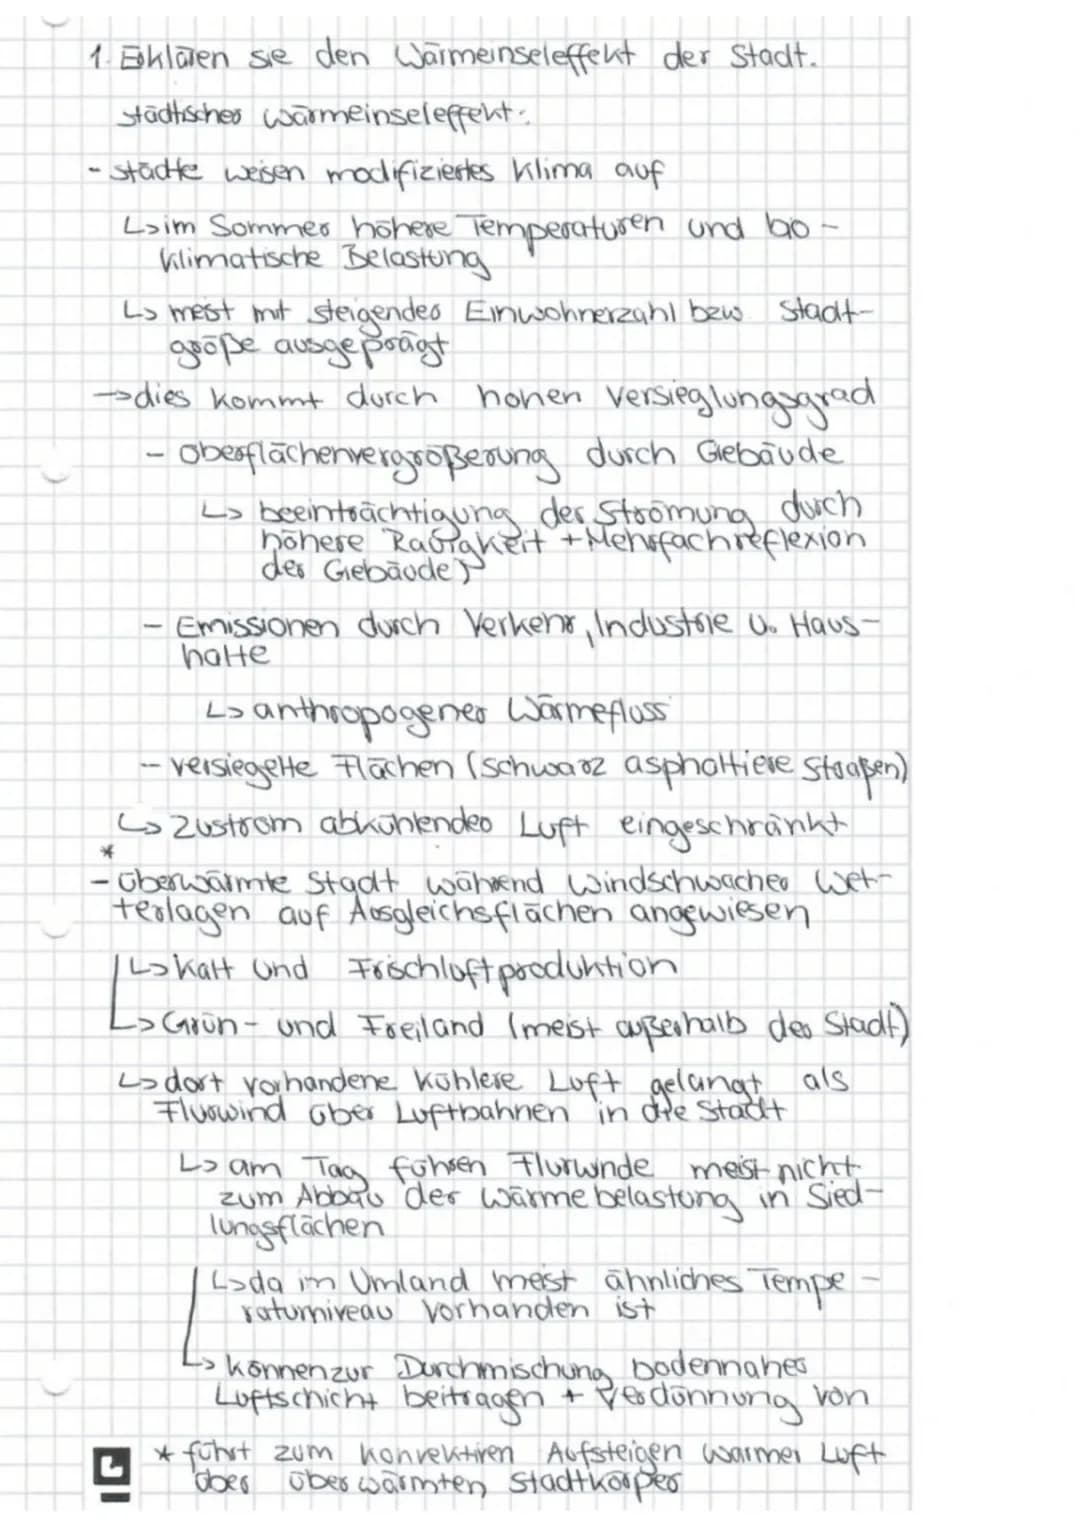 1. Erklären sie den Wärmeinseleffekt der Stadt.
städtischer wärmeinseleffekt:
- städte weisen modifiziertes Klima auf
↳ im Sommer höhere Temperaturen und bio-
klimatische Belastung
↳ meist mit steigender Einwohnerzahl bzw Stadt-
größe ausgeprägt
→ dies kommt durch hohen Versieglungsgrad
- Oberflächenvergrößerung durch Gebäude
↳ beeinträchtigung der Strömung durch
höhere Rauigkeit + Mehrfachreflexion
der Gebäude)
- Emissionen durch Verkehr, Industrie u. Haus-
halte
↳ anthropogener Wärmefluss
- versiegelte Flächen (schwarz asphaltiere Straßen)
↳ Zustrom abkühlender Luft eingeschränkt
*
- überwärmte Stadt während windschwacher Wet-
terlagen auf Ausgleichsflächen angewiesen
↳ kalt und Frischluftproduktion
↳ Grün- und Freiland (meist außerhalb der Stadt)
↳ dort vorhandene kühlere Luft gelangt als
Flurwind über Luftbahnen in die Stadt
↳ am Tag führen Flurwinde meist nicht
zum Abbau der wärmebelastung in Sied-
lungsflächen
↳ da im Umland meist ähnliches Tempe-
raturniveau vorhanden ist
↳ können zur Durchmischung bodennaher
Luftschicht beitragen + Verdünnung von
* führt zum konvektiven Aufsteigen warmer Luft
über überwärmten Stadtkörper